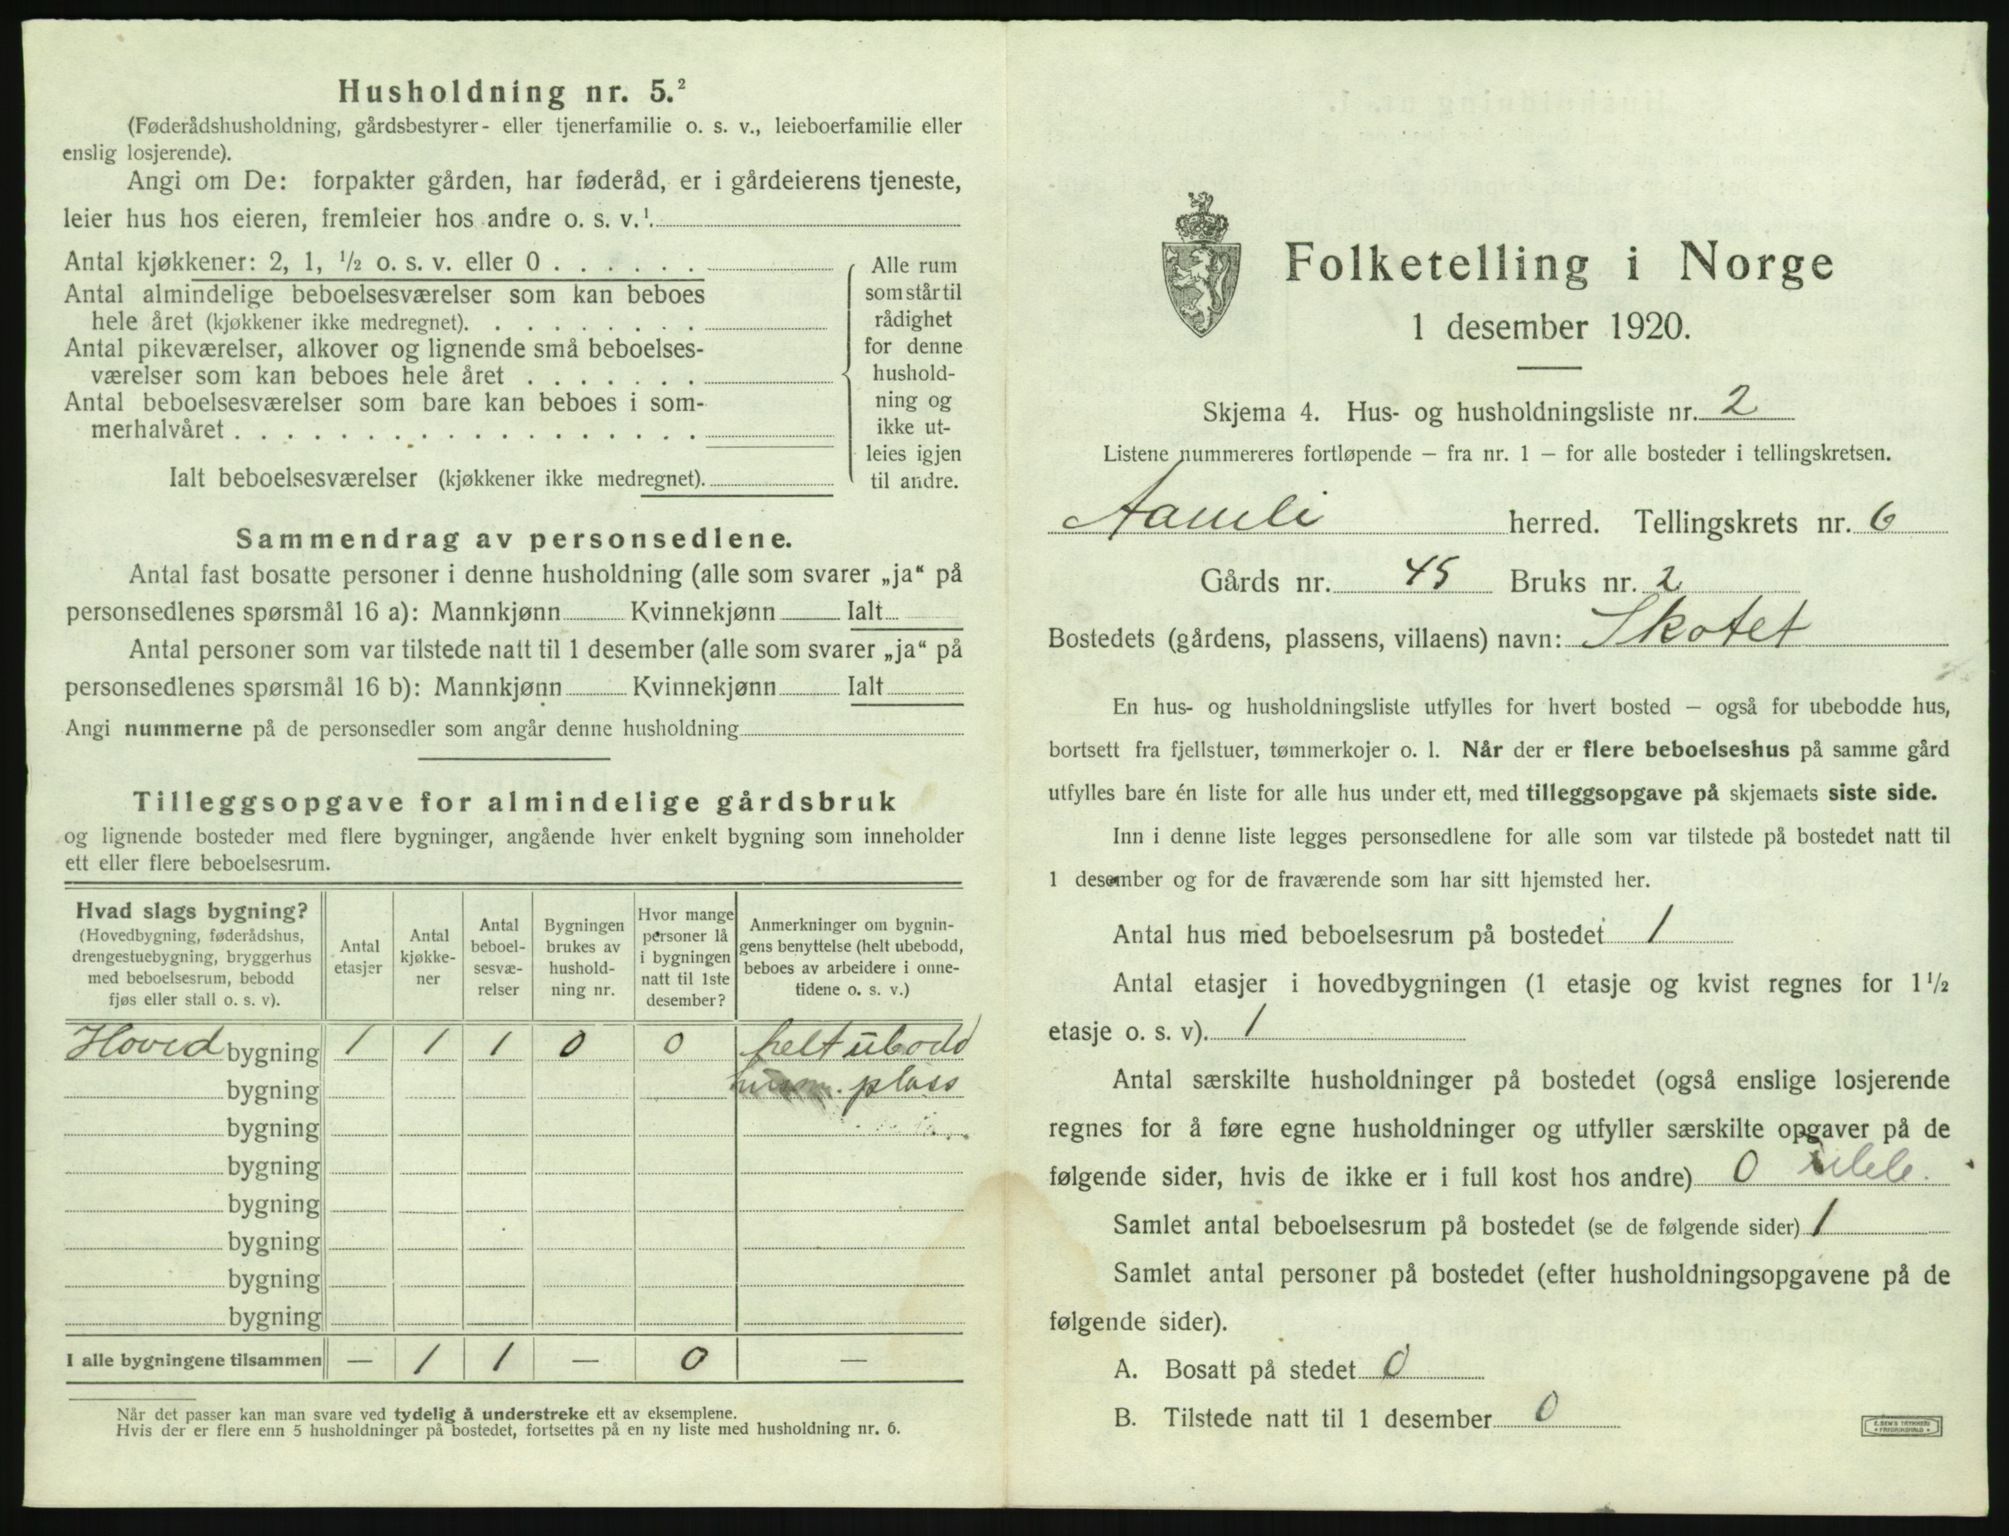 Husholdning nr. 5.²
(Føderådshusholdning, gårdsbestyrer- eller tjenerfamilie o. s. v., leieboerfamilie eller
enslig losjerende).
Angi om De: forpakter gården, har føderåd, er i gårdeierens tjeneste,
leier hus hos eieren, fremleier hos andre o. s. v.¹
Antal kjøkkener: 2, 1, ½ o. s. v. eller 0 . . . . . .
Antal almindelige beboelsesværelser som kan beboes
hele året (kjøkkener ikke medregnet). . . . . . . . .
Antal pikeværelser, alkover og lignende små beboelses-
værelser som kan beboes hele året . . . . . . .
Antal beboelsesværelser som bare kan beboes i som-
merhalvåret . . . . . . . . . . . . . . . . . .
Ialt beboelsesværelser (kjøkkener ikke medregnet).
Alle rum
som står til
rådighet
for denne
hushold-
ning og
ikke ut-
leies igjen
til andre.
Sammendrag av personsedlene.
Antal fast bosatte personer i denne husholdning (alle som svarer „ja“ på
personsedlenes spørsmål 16 a): Mannkjønn Kvinnekjønn Ialt
Antal personer som var tilstede natt til 1 desember (alle som svarer „ja“ på
personsedlenes spørsmål 16 b): Mannkjønn Kvinnekjønn Ialt
Angi nummerne på de personsedler som angår denne husholdning
Tilleggsopgave for almindelige gårdsbruk
og lignende bosteder med flere bygninger, angående hver enkelt bygning som inneholder
ett eller flere beboelsesrum.
Hvad slags bygning?
(Hovedbygning, føderådshus,
drengestuebygning, bryggerhus
med beboelsesrum, bebodd
fjøs eller stall o. s. v).
Antal
etasjer
Antal
kjøkke-
ner
Antal
beboel-
sesvæ-
relser
Bygningen
brukes av
hushold-
ning nr.
Hvor mange
personer lå
i bygningen
natt til 1ste
desember?
Anmerkninger om bygnin-
gens benyttelse (helt ubebodd,
beboes av arbeidere i onne-
tidene o. s. v.)
Hoved bygning 1 1 1 0 0 helt ubodd
bygning husm. plass
bygning
bygning
bygning
bygning
bygning
bygning
I alle bygningene tilsammen — 1 1 — 0 —
Når det passer kan man svare ved tydelig å understreke ett av eksemplene.
Hvis der er flere enn 5 husholdninger på bostedet, fortsettes på en ny liste med husholdning nr. 6.
Folketelling i Norge
1 desember 1920.
Skjema 4. Hus- og husholdningsliste nr. 2
Listene nummereres fortløpende – fra nr. 1 – for alle bosteder i tellingskretsen.
Aamli herred. Tellingskrets nr. 6
Gårds nr. 45 Bruks nr. 2
Bostedets (gårdens, plassens, villaens) navn: Skotet
En hus- og husholdningsliste utfylles for hvert bosted – også for ubebodde hus,
bortsett fra fjellstuer, tømmerkojer o. l. Når der er flere beboelseshus på samme gård
utfylles bare én liste for alle hus under ett, med tilleggsopgave på skjemaets siste side.
Inn i denne liste legges personsedlene for alle som var tilstede på bostedet natt til
1 desember og for de fraværende som har sitt hjemsted her.
Antal hus med beboelsesrum på bostedet 1
Antal etasjer i hovedbygningen (1 etasje og kvist regnes for 1½
etasje o. s. v). 1
Antal særskilte husholdninger på bostedet (også enslige losjerende
regnes for å føre egne husholdninger og utfyller særskilte opgaver på de
følgende sider, hvis de ikke er i full kost hos andre) 0
Samlet antal beboelsesrum på bostedet (se de følgende sider) 1
Samlet antal personer på bostedet (efter husholdningsopgavene på de
følgende sider).
A. Bosatt på stedet 0
B. Tilstede natt til 1 desember 0
E. SEM'S TRYKKERI
FREDRIKSHALD